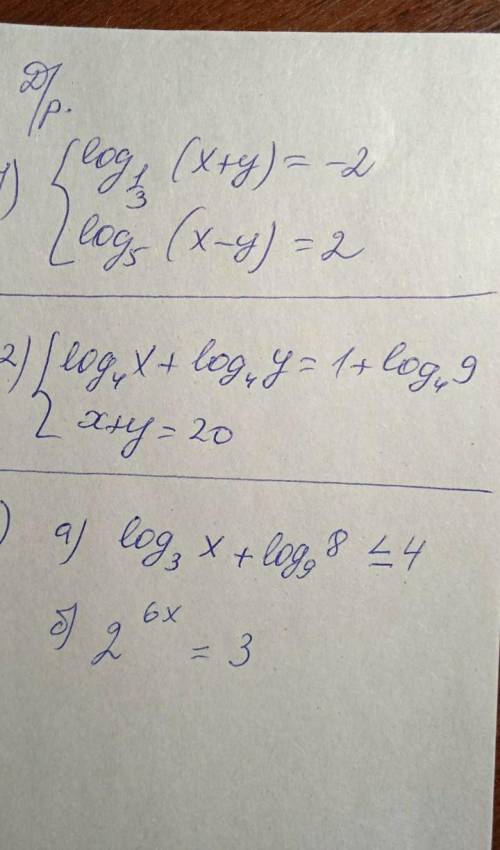 Д/р.
1) { log_{1/3} (x+y) = -2
log_5 (x-y) = 2
2) { log_4 x + log_4 y = 1 + log_4 9
x+y = 20
) а) log_3 x + log_9 8 ≤ 4
б) 2^{6x} = 3